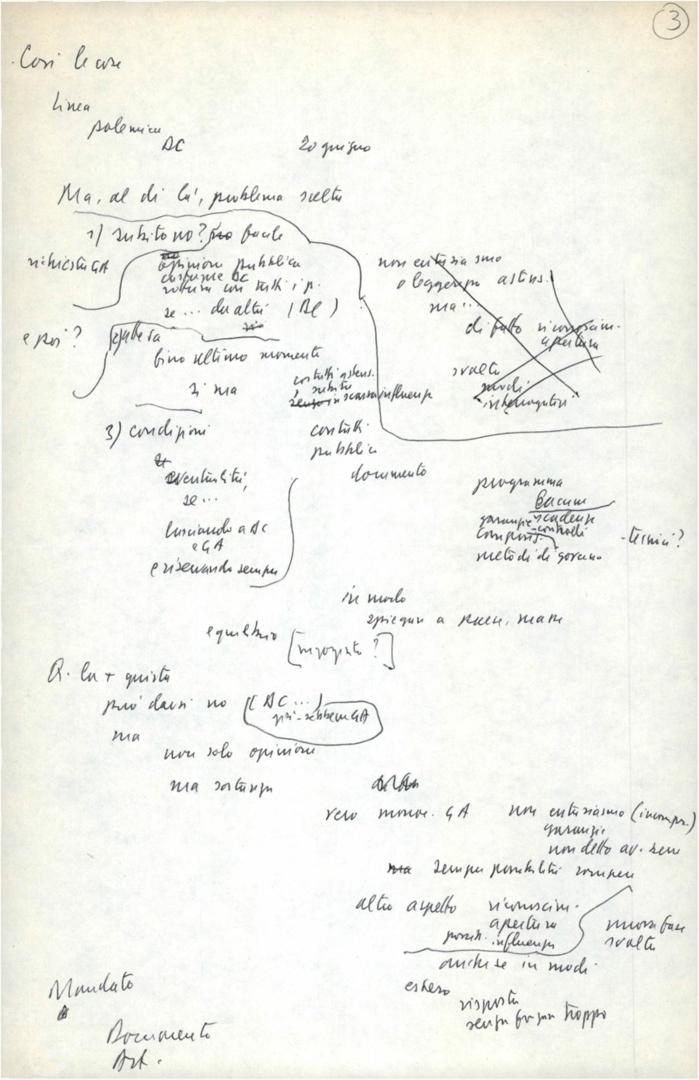 3
Così le cose
linea
polemica
DC
20 giugno
Ma, al di là, problema scelta
1) subito no? facile
richiesta GA
opinione pubblica
costume DC
rottura con tutti i p.
se ... da altri (DC)
non entusiasmo
o leggerepa astens.
ma...
di fatto riconoscim.
apertura
svolta
interrogativi
e poi?
fino ultimo momento
sì ma
contatti astens.
subito
senza in scarsa influenza
3) condizioni
contatti
pubblica
documento
eventualità,
se ...
lasciando a DC
e GA
e riservando sempre
programma
garanzie scadenze
compos. controlli
metodi di governo
- tecnici?
in modo
spiegare a paese, masse
equilibrio
[ingognito?]
Q. la + giusta
può darsi no (DC ...)
GA
ma
non solo opinione
ma sostanza
vero manov. GA
non entusiasmo (incompr.)
garanzie
non detto av. sem
ma sempre possibilità rompere
altro aspetto riconoscim.
apertura
possib. influenza
nuova fase
svolta
anche se in modi
estero
risposta
senza troppo
Mandato
Documento
Art.